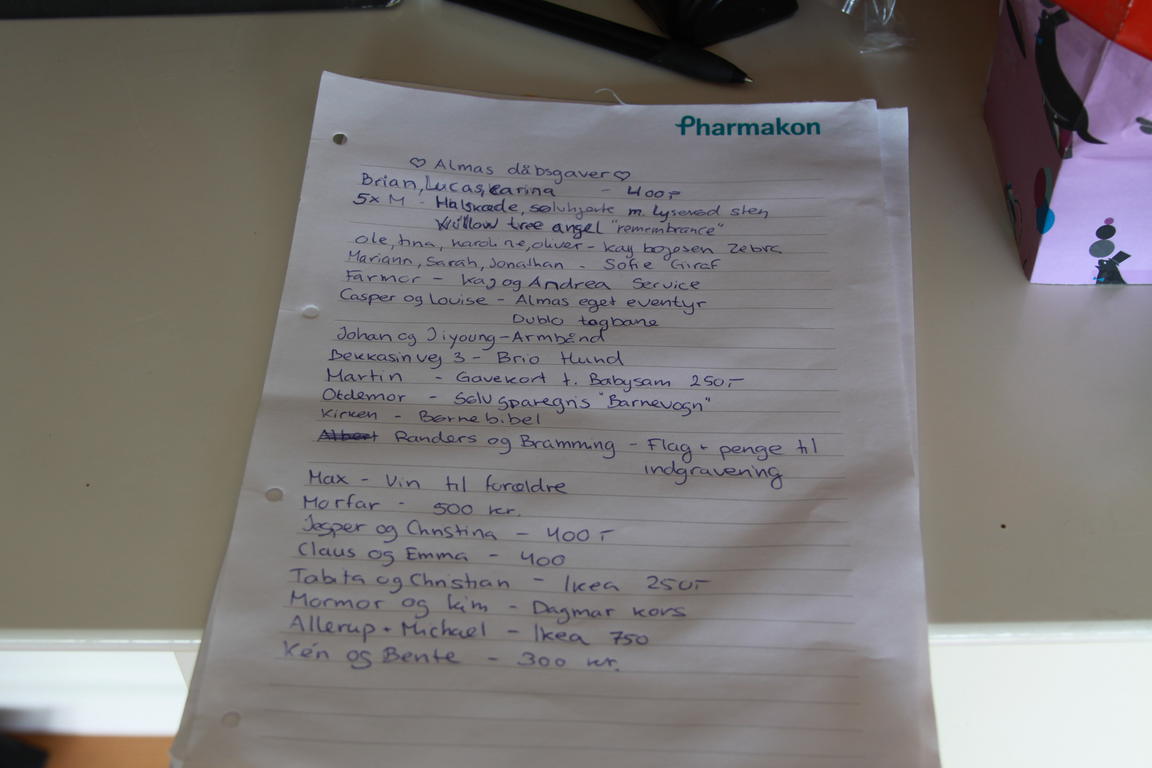 Pharmakon
♡ Almas dåbsgaver ♡
Brian, Lucas, Carina - 400,-
5x M - Halskæde, sølvhjerte m. lyserød sten
Willow tree angel "remembrance"
Ole, tina, karoline, oliver - kay bojesen Zebra
Mariann, Sarah, Jonathan - Sofie Giraf
Farmor - kaj og Andrea Service
Casper og Louise - Almas eget eventyr
Dublo togbane
Johan og Jiyoung - Armbånd
Bekkasinvej 3 - Brio Hund
Martin - Gavekort t. Babysam 250,-
Oldemor - Sølv sparegris "Barnevogn"
Kirken - Børnebibel
Albert Randers og Bramming - Flag + penge til
indgravering
Max - Vin til forældre
Morfar - 500 kr.
Jesper og Christina - 400,-
Claus og Emma - 400
Tabita og Christian - Ikea 250,-
Mormor og Kim - Dagmar kors
Allerup + Michael - Ikea 750
Ken og Bente - 300 kr.